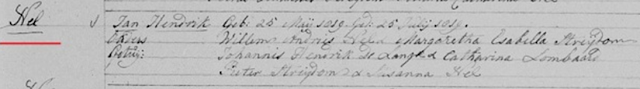 Nel
Jan Hendrik Geb: 25 Meij 1819. Ged: 25 Julij 1819.
Ouders Willem Andries Nel & Margaretha Isabella Strijdom
Getuij: Johannis Hendrik de Lange & Catharina Lombaard
Pieter Strijdom & Susanna Nel